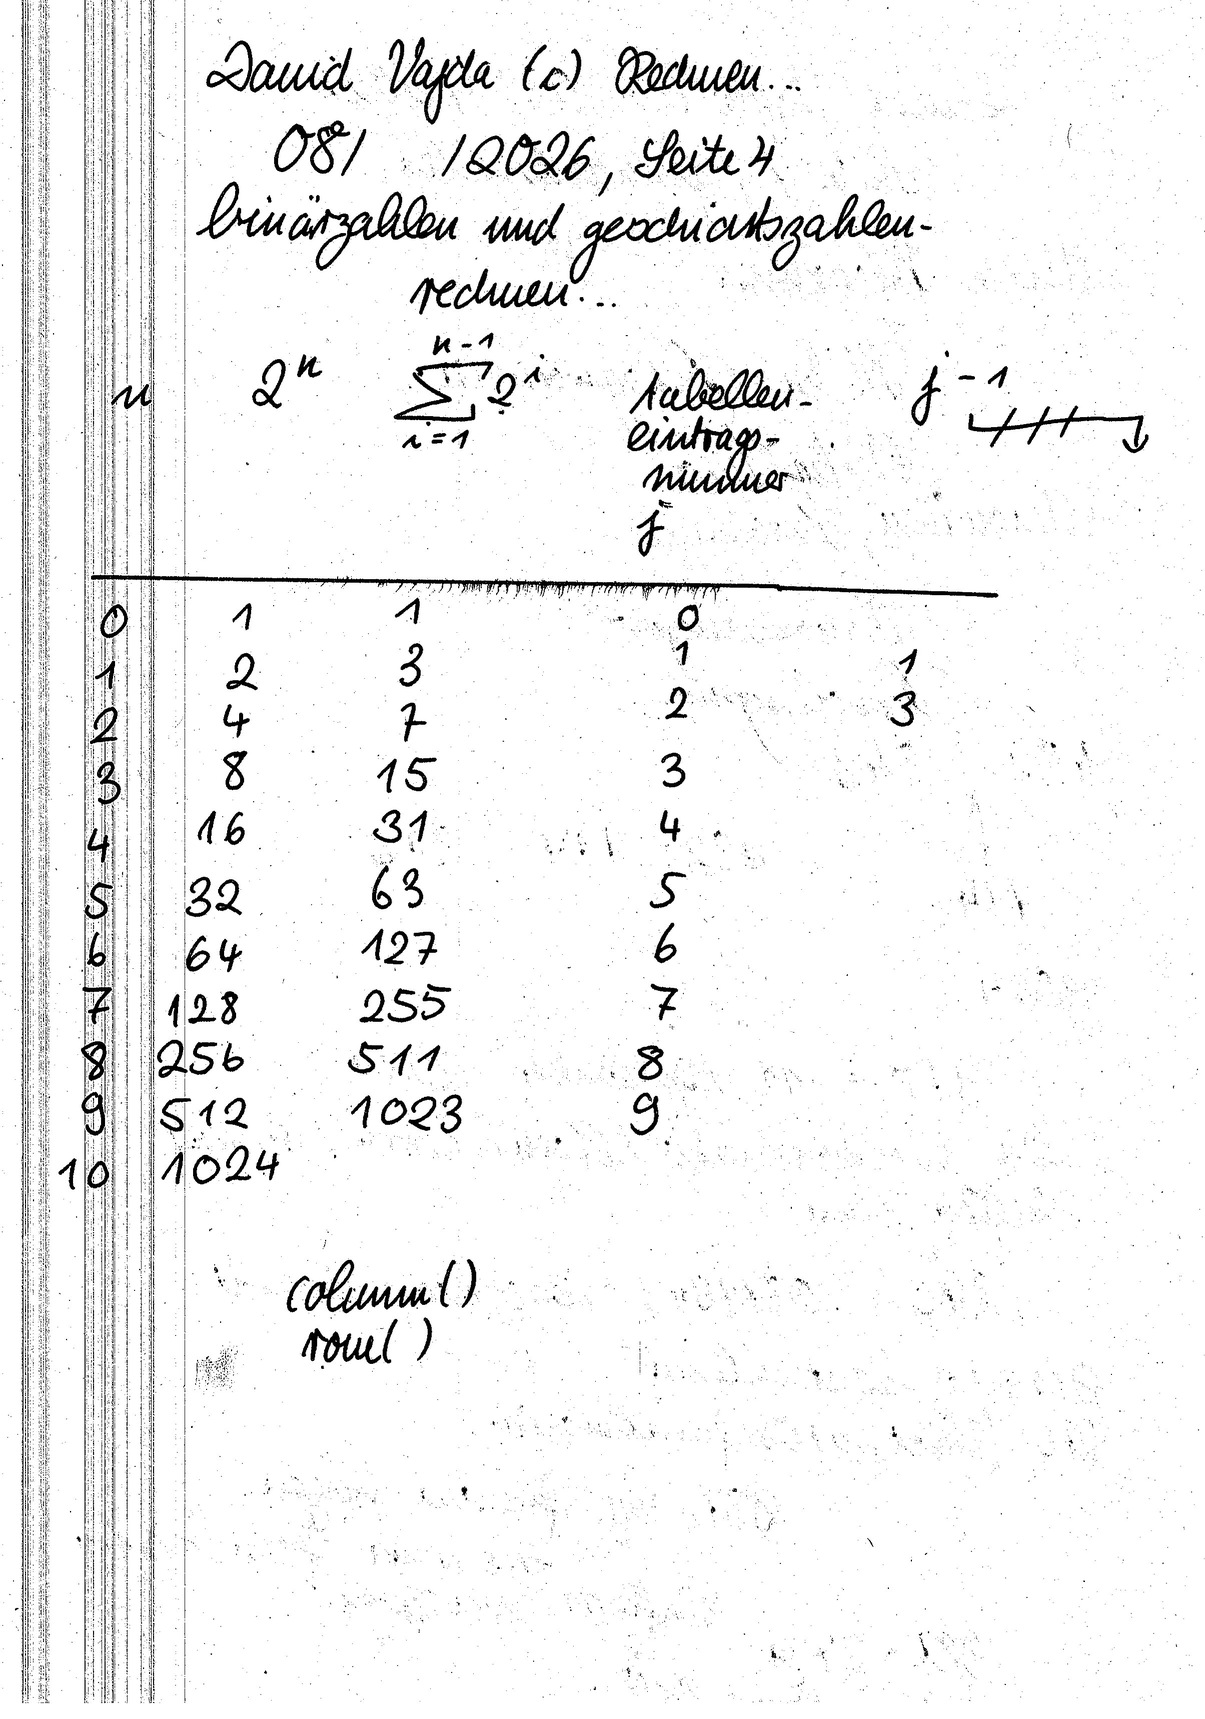 David Vajda (c) Rechnen...
08/ /2026, Seite 4
binärzahlen und geschichtszahlen-
rechnen...
n 2^n \sum_{i=1}^{n-1} 2^i tabellen-
eintrags-
nummer
j j-1
0 1 1 0
1 2 3 1 1
2 4 7 2 3
3 8 15 3
4 16 31 4
5 32 63 5
6 64 127 6
7 128 255 7
8 256 511 8
9 512 1023 9
10 1024
column()
row()